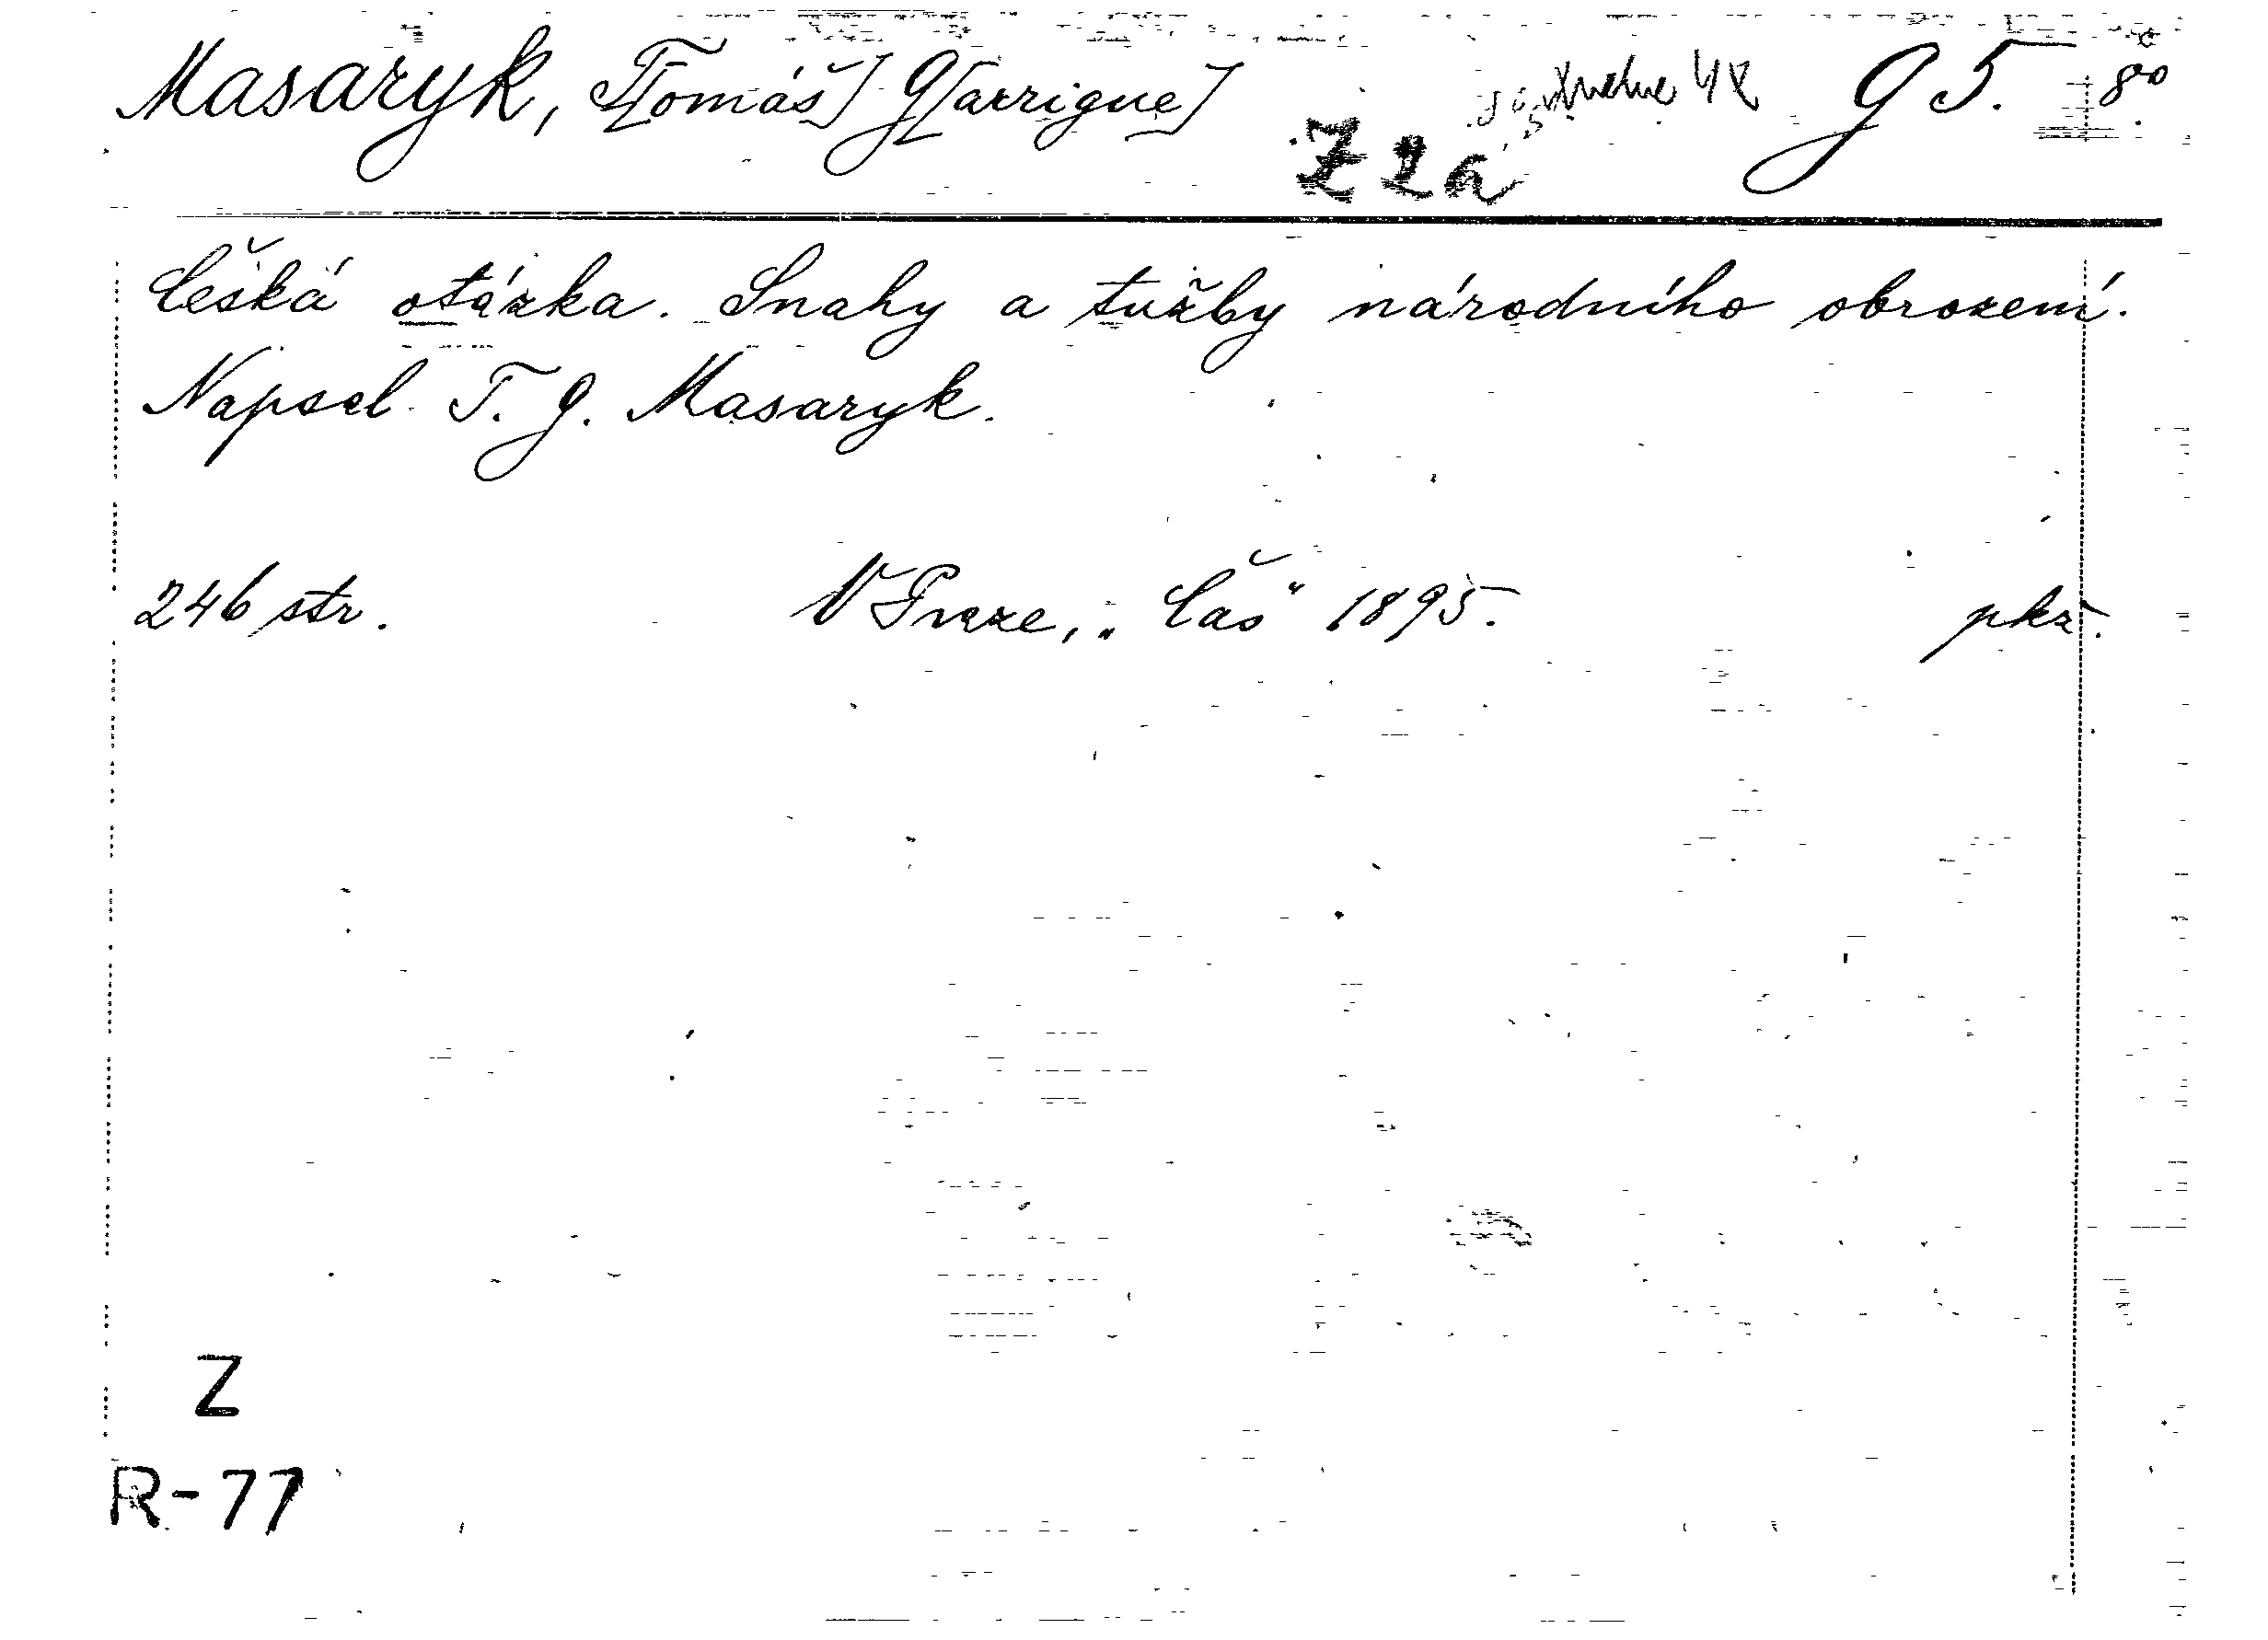 Masaryk, T[omáš] G[arrigue] G 5. 8°
Z 2a
Česká otázka. Snahy a tužby národního obrození.
Napsal T. G. Masaryk.
246 str. V Praze, „Čas“ 1895. pkz.
Z
R-77